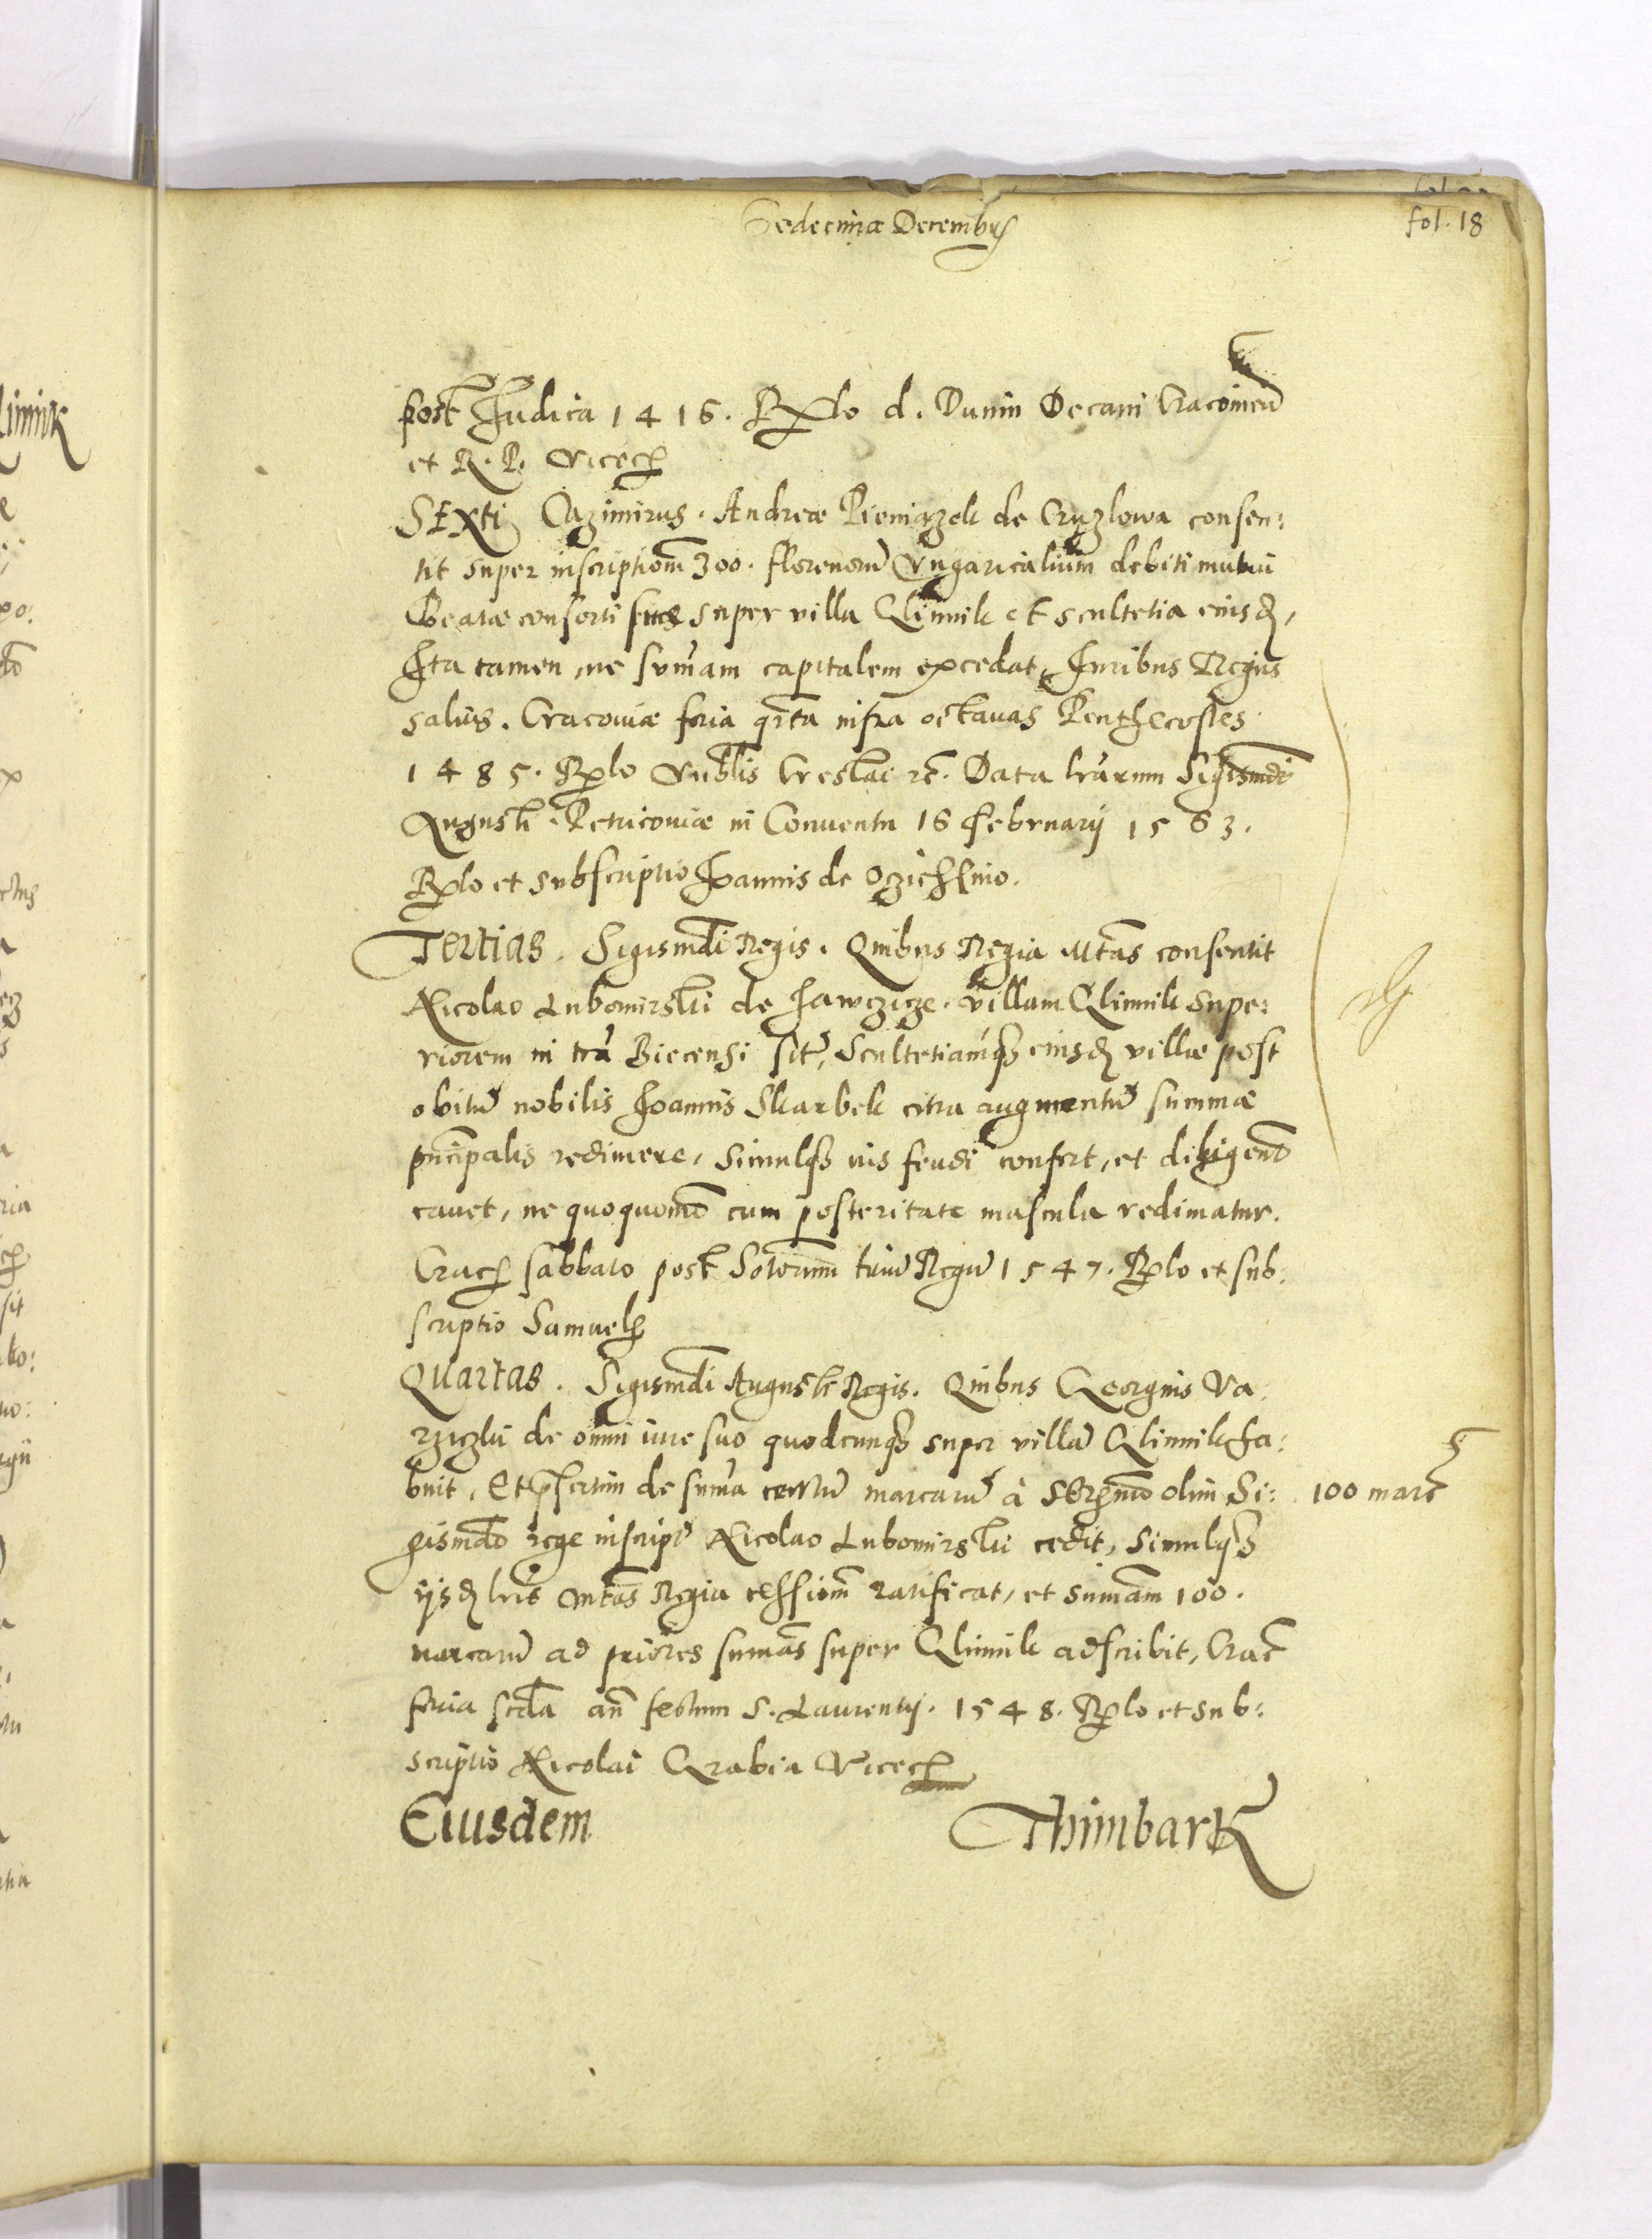 Sedecima Decembris
fol. 18
post Judica 1416. Rlo d. Dunin Decani Cracouien
et R. P. Vicecan
SExti Cazimirus. Andreæ Pieniązek de Cruzlowa consen:
tit super inscriptionem 300. florenorum Vngaricalium debiti mutui
Beatæ consorti suæ super villa Klimik et scultetia eiusd,
Ita tamen, ne summam capitalem excedat, Iuribus Regiis
saluis. Cracouiæ feria qrta infra octauas Penthecostes
1485. Rlo Viesław Creslai rc. Data lrarum Sigismdi
Augusti. Petricouiæ in Conuentu 16 Februarij 1563.
Rlo et subscriptio Joannis de Ocziesschino.
Tertias. Sigismdi Regis. Quibus Regia Mtas consentit
Nicolao Lubomirski de Jawczicze. villam Klimik supe:
riorem in tra Biecensi sitam, Scultetiamqz eiusd villæ post
obitum nobilis Joannis Skarbek citra augmentum summæ
principalis redimere, simulqz ius feudi confert, et diligenter
cauet, ne quoquomodo cum posteritate mascula redimatur.
Crac sabbato post Solorum trium Regum 1547. Rlo et sub:
scriptio Samuelis
Quartas. Sigismdi Augusti Regis. Quibus Georgius Va:
rziczki de omni iure suo quodcunqz super villam Klimik ha:
buit, Et psertim de summa centum marcarum à Sermo olim Si:
100 marc
gismdo rege inscript Nicolao Lubomirski cedit, simulqz
ijsd lris Mtas Regia cessionem ratificat, et summam 100.
marcarum ad priores summas super Klimik adscribit, Crac
feria scda an festum S. Laurentij. 1548. Rlo et sub:
scriptio Nicolai Grabia Vicecan
Eiusdem
Thimbark